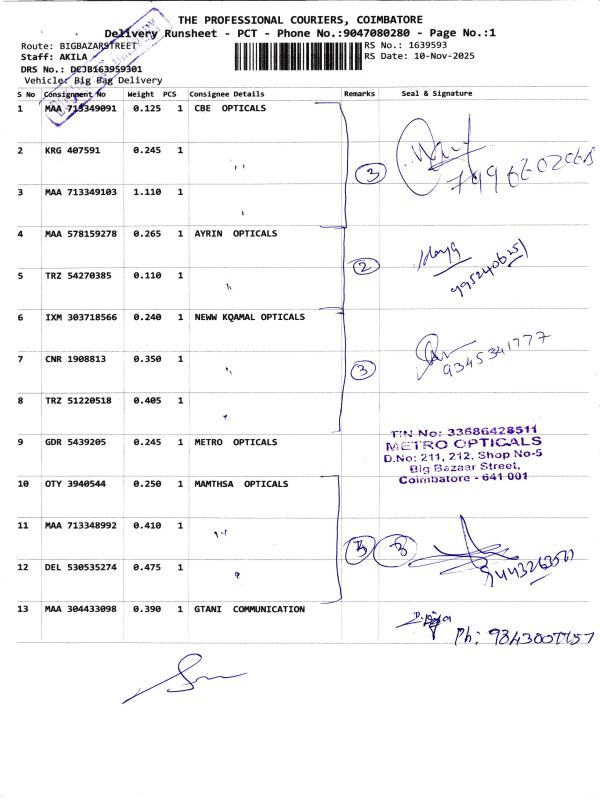 THE PROFESSIONAL COURIERS, COIMBATORE
Delivery Runsheet - PCT - Phone No.:9047080280 - Page No.:1
Route: BIGBAZARSTREET
RS No.: 1639593
Staff: AKILA
RS Date: 10-Nov-2025
DRS No.: DCJB163959301
Vehicle: Big Bag Delivery
S No Consignment No Weight PCS Consignee Details Remarks Seal & Signature
1 MAA 713349091 0.125 1 CBE OPTICALS
2 KRG 407591 0.245 1 ,,
3 MAA 713349103 1.110 1
3
4 MAA 578159278 0.265 1 AYRIN OPTICALS
2
5 TRZ 54270385 0.110 1 ,,
6 IXM 303718566 0.240 1 NEWW KQAMAL OPTICALS
9345341777
7 CNR 1908813 0.350 1 ,,
3
8 TRZ 51220518 0.405 1 ,,
9 GDR 5439205 0.245 1 METRO OPTICALS
TIN No: 33686428511
METRO OPTICALS
D.No: 211, 212, Shop No-5
Big Bazaar Street,
Coimbatore - 641 001
10 OTY 3940544 0.250 1 MAMTHSA OPTICALS
11 MAA 713348992 0.410 1 ,,
3
12 DEL 530535274 0.475 1 ,,
13 MAA 304433098 0.390 1 GTANI COMMUNICATION
Ph: